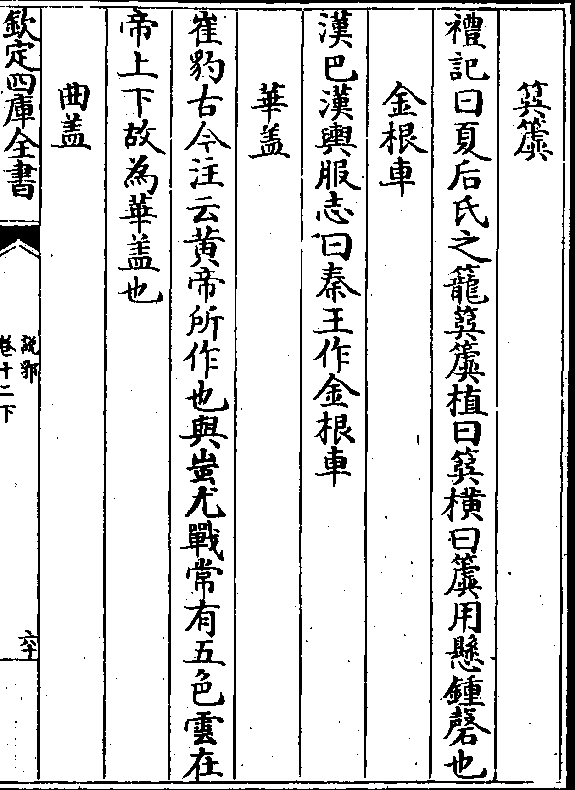 簨簴
禮記曰夏后氏之籠簨簴植曰簨橫曰簴用懸鍾磬也
金根車
漢巴漢輿服志曰秦王作金根車
華盖
崔豹古今注云黄帝所作也與蚩尤戰常有五色雲在
帝上下故為華盖也
曲盖
欽定四庫全書
說郛
卷十二下
六十